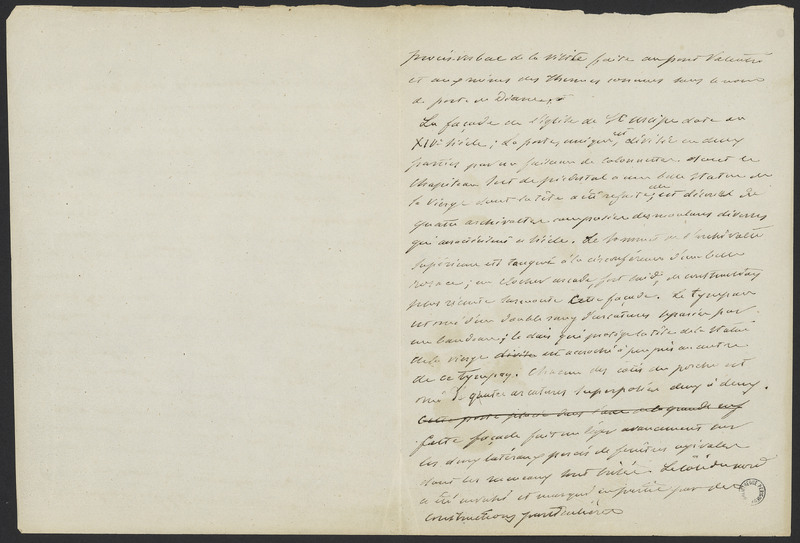 procès verbal de la visite faite au pont Valentré
et aux ruines des Thermes connues sous le nom
de porte de Diane,
La façade de l'église de St Urcisse date du
XIVe siècle ; La porte, unique, est divisée en deux
parties par un faisceau de colonnettes dont le
chapiteau sert de piédestal à une belle statue de
la Vierge dont la tête a été refaite ; elle est décorée de
quatre archivoltes composées de moulures diverses
qui ce siècle. Le sommet de l'archivolte
supérieure est tangent à la circonférence d'une belle
rosace ; un clocher arcade, fort laid, de construction
plus récente surmonte cette façade. Le tympan
est orné d'un double rang d'arcatures séparées par
un bandeau ; le dais qui protège la tête de la statue
de la vierge divise est accroché à peu près au centre
de ce tympan. Chacun des cotés du porche est
orné de quatre arcatures superposées deux à deux.
Cette porte placée dans l'axe de la grande nef
Cette façade fait un léger avancement sur
les deux latéraux percés de fenêtres ogivales
dont les meneaux sont brisés. Le côté du nord
a été et masqué en partie par des
constructions particulières